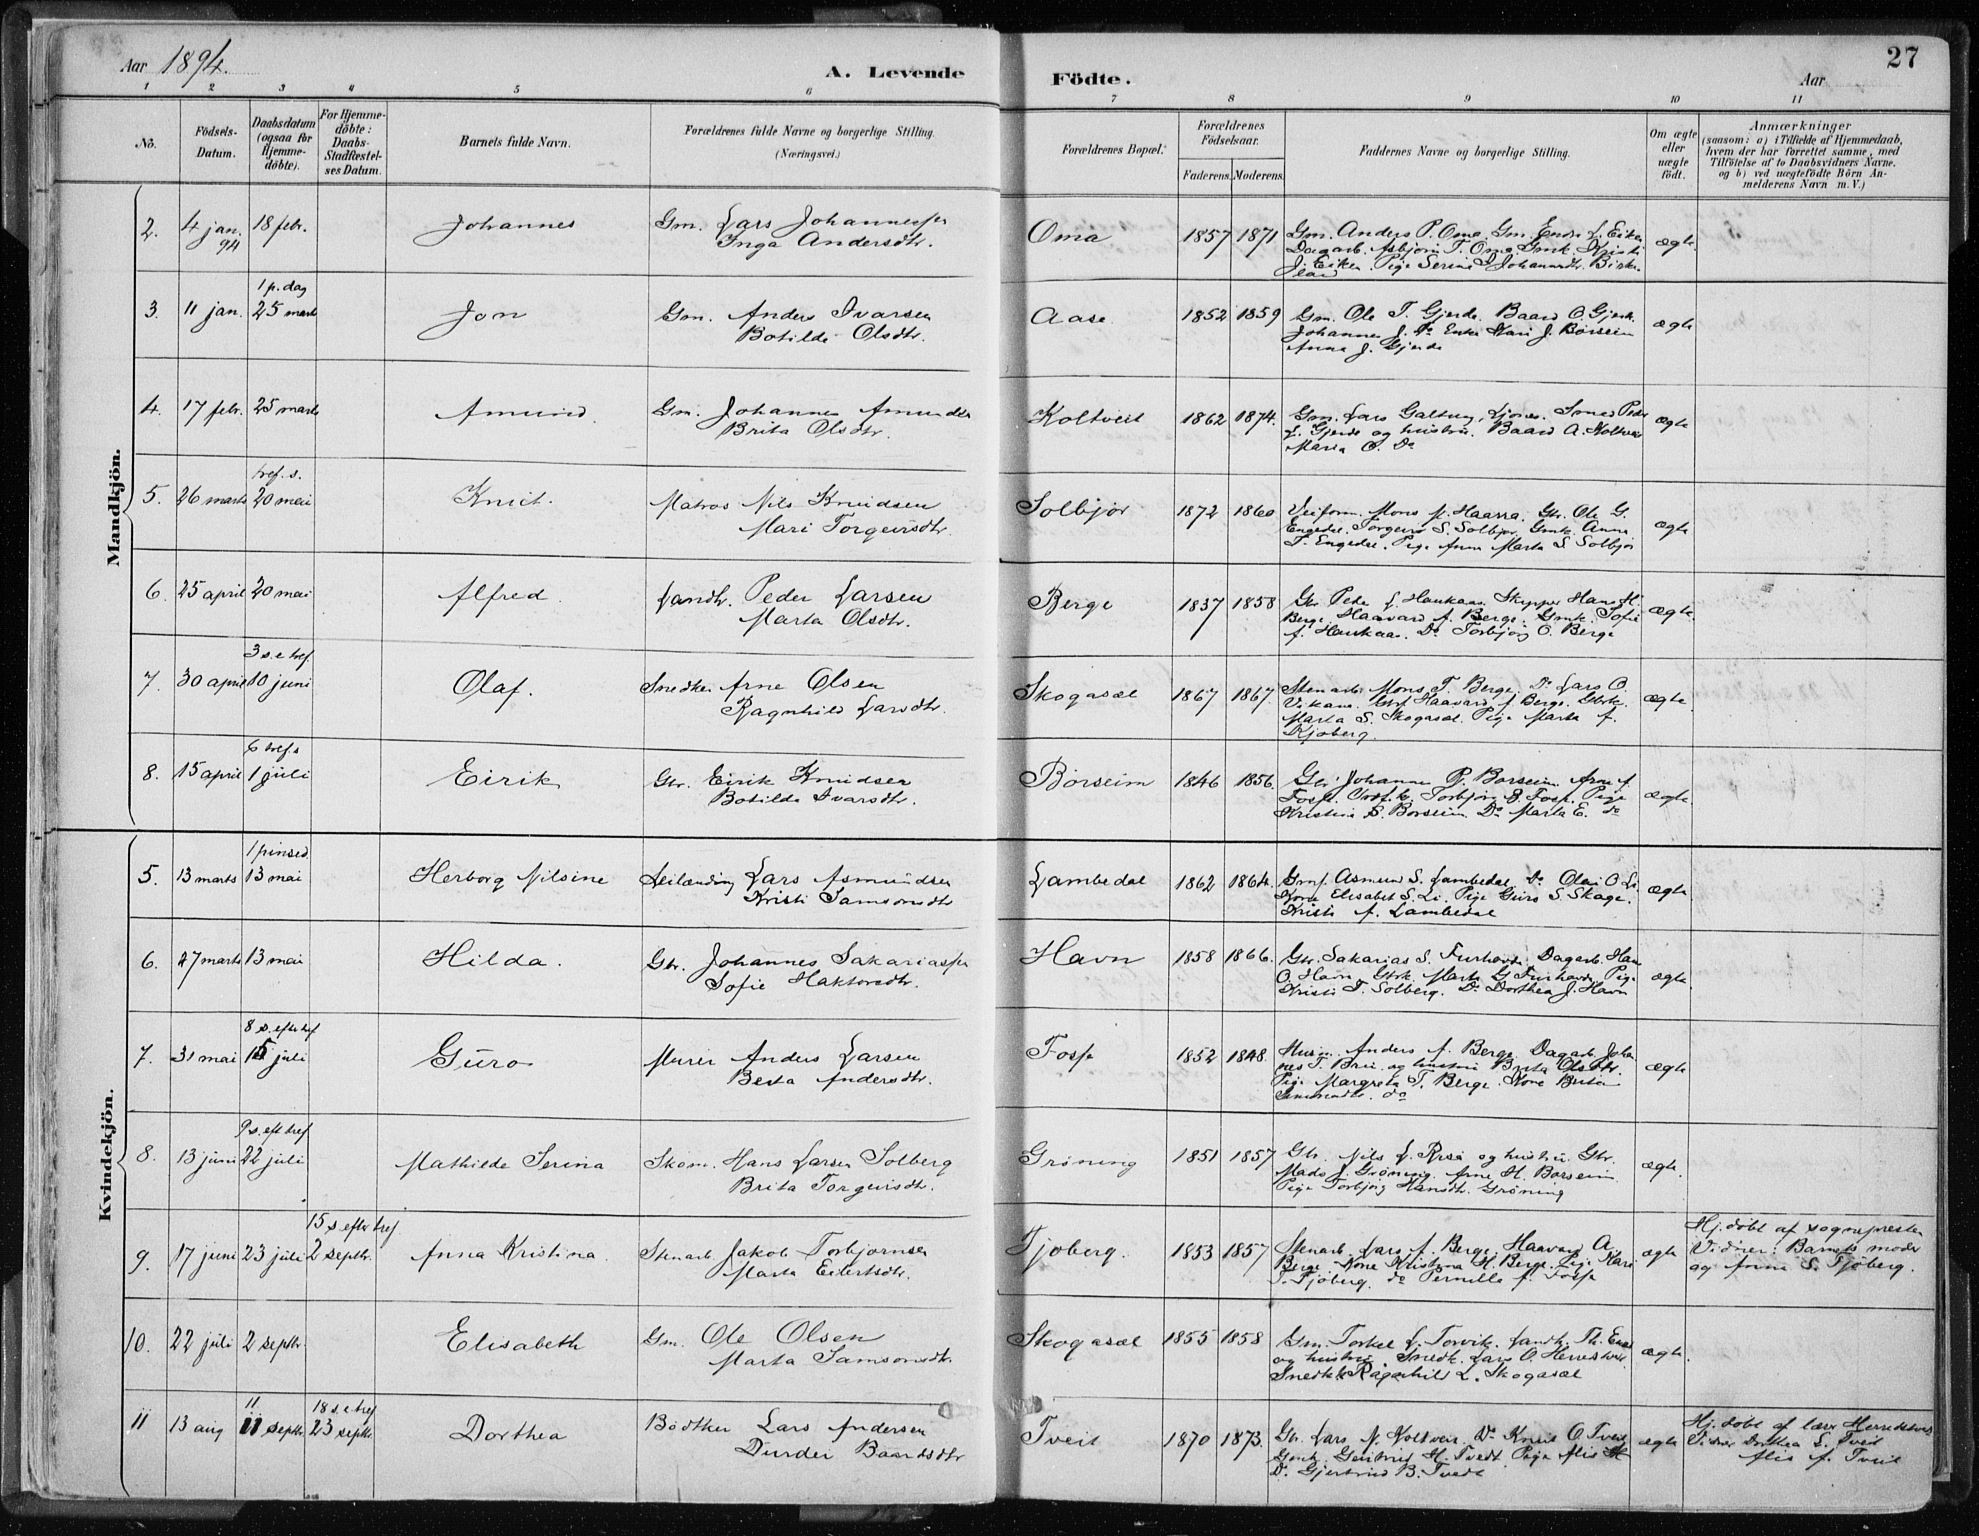 Aar 1894.
A. Levende
Födte.
Aar
27
1 2 3 4 5 6 7 8 9 10 11
No.
Födsels-
Datum.
Daabsdatum
(ogsaa for
Hjemme-
döbte).
For Hjemme-
döbte:
Daabs-
Stadfæstel-
ses Datum.
Barnets fulde Navn.
Forældrenes fulde Navne og borgerlige Stilling.
(Næringsvei.)
Forældrenes Bopæl.
Forældrenes
Födselsaar.
Faderens. Moderens.
Faddernes Navne og borgerlige Stilling.
Om ægte
eller
uægte
født.
Anmærkninger
(saasom: a) i Tilfælde af Hjemmedaab,
hvem der har forrettet samme, med
Tilföielse af to Daabsvidners Navne,
og b) ved uægtefödte Börn An-
melderens Navn m. V.)
Mandkjön.
2. 4 jan. 94 18 febr. Johannes
Gm. Lars Johannesen
Inga Andersdtr.
Oma 1857 1871
Gm. Anders P. Oma. Gm. Endre L. Eiken
Dagarb. Asbjørn T. Oma Gmk. Kristi
J. Eiken. Pige Serina Johannesdtr. Birke-
land
ægte
3. 11 jan. 1 p. dag 25 marts Jon
Gm. Anders Ivarsen
Botilde Olsdtr.
Aase 1852 1859
Gm. Ole T. Gjerde. Baard O. Gjerde.
Johannes J. Do Enke Kari J. Børseim
Anna J. Gjerde
ægte
4. 17 febr. 25 marts Amund.
Gm. Johannes Amundsen
Brita Olsdtr.
Koltveit 1862 1874.
Gm. Lars Galtung, Ljones. Smed Peder
L. Gjerde og hustru. Baard A. Koltveit
Maria O. Do
ægte
5. 26 marts tref. s. 20 mai Knut.
Matros Nils Knudsen
Mari Torgeirsdtr.
Solbjør 1872 1860
Veiform. Mons N. Haarra. Gbr. Ole G.
Engedal. Torgeirs S. Solbjør Gmk. Anna
T. Engedal. Pige Anna Marta S. Solbjør
ægte
6. 25 april 20 mai Alfred.
Landh. Peder Larsen
Marta Olsdtr.
Berge 1837 1858
Gbr. Peder L. Haukaas. Skipper Hans H.
Berge. Haavard A. Berge. Gmk. Sofie
A. Haukaas. Do Torbjørg O. Berge
ægte.
7. 30 april 3 s. e. tref. 10 juni Olaf.
Snedker Arne Olsen
Ragnhild Larsdtr.
Skogasæl 1867 1867.
Stenarb. Mons T. Berge. Do Lars O.
Vikane. Haavard A. Berge. Gbrk.
Marta S. Skogasæl. Pige Marta A.
Kjøberg.
ægte.
8. 15 april 6 tref. s 1 juli Eirik
Gbr. Eirik Knudsen
Botilda Ivarsdtr.
Børseim 1846 1856.
Gbr. Johannes P. Børseim Arne A.
Fosse. Torbjørg Fosse. Pige
Kristina S. Børseim. Do Marta E. do
ægte.
Kvindekjön.
5. 13 marts 1 pinsed. 13 mai Herborg Nilsine
Leilænding Lars Asmundsen
Kristi Samsonsdtr.
Lambedal 1862 1864.
Asmund S. Lambedal Do Olai O. Li
Kone Elisabet S. Li. Pige Guro S. Skage.
Kristi A. Lambedal
ægte
6. 27 marts 13 mai Hilda.
Gbr. Johannes Sakariassen
Sofie Haktorsdtr.
Havn 1858 1866.
Gbr. Sakarias S. Furhovde Dagarb. Hans
O. Havn. Gbrk. Marta G. Furhovde Pige
Kristi T. Solberg. Do Dorthea J. Havn
ægte
7. 31 mai 8 s. efter tref 15 juli Guro
Murer Anders Larsen
Berta Andersdtr.
Fosse 1852 1848.
Husm. Anders A. Berge. Dagarb. Johan-
nes T. Brei. og hustru Brita Olsdtr.
Pige Margreta T. Berge. Kone Berta
do
ægte
8. 13 juni 9 s. eft tref 22 juli Mathilde Serina
Skom. Hans Larsen Solberg
Brita Torgeirsdtr.
Grøning 1851 1857
Gbr. Nils L. Risa og hustru. Gbr.
Mads J. Grøning. Arne H. Børseim
Pige Torbjørg Hansdtr. Grøning
ægte.
9. 17 juni 23 juli 15 s. efter tref 2 septbr. Anna Kristina.
Stenarb. Jakob Torbjørnsen
Marta Eilertsdtr.
Tjoberg. 1853 1857
Stenarb. Lars A. Berge. Haavard A.
Berge. Kone Kristina H. Berge. Pige Kari
T. Fjøberg. do Pernilla A. Fosse
ægte
Hj. døbt af sognepresten
Vidner: Barnets moder
og Anna S. Fjøberg.
10. 22 juli 2 septbr. Elisabeth
Gm. Ole Olsen
Marta Samsonsdtr.
Skogasæl 1855 1858
Gm. Torkel L. Torvik. Landh. Th.
og hustru. Snedk. Lars O. Herrestveit
Snedkk. Ragnhild L. Skogasæl
ægte.
11 13 aug 11 11 septbr. 18 s. e. tref 23 septbr. Dorthea
Bødtker Lars Andersen
Durdei Baardsdtr.
Tveit 1870 1873.
Gbr. Lars N. Koltveit. Do Knut O. Tveit
Gmk. Geirtrud H. Tvedt. Pige Alis
Do. Gjertrud B. Tvedt
ægte
Hj. døbt af lær. Herrestveit
Vidner Dorthea L. Tveit
Alis A. Tveit